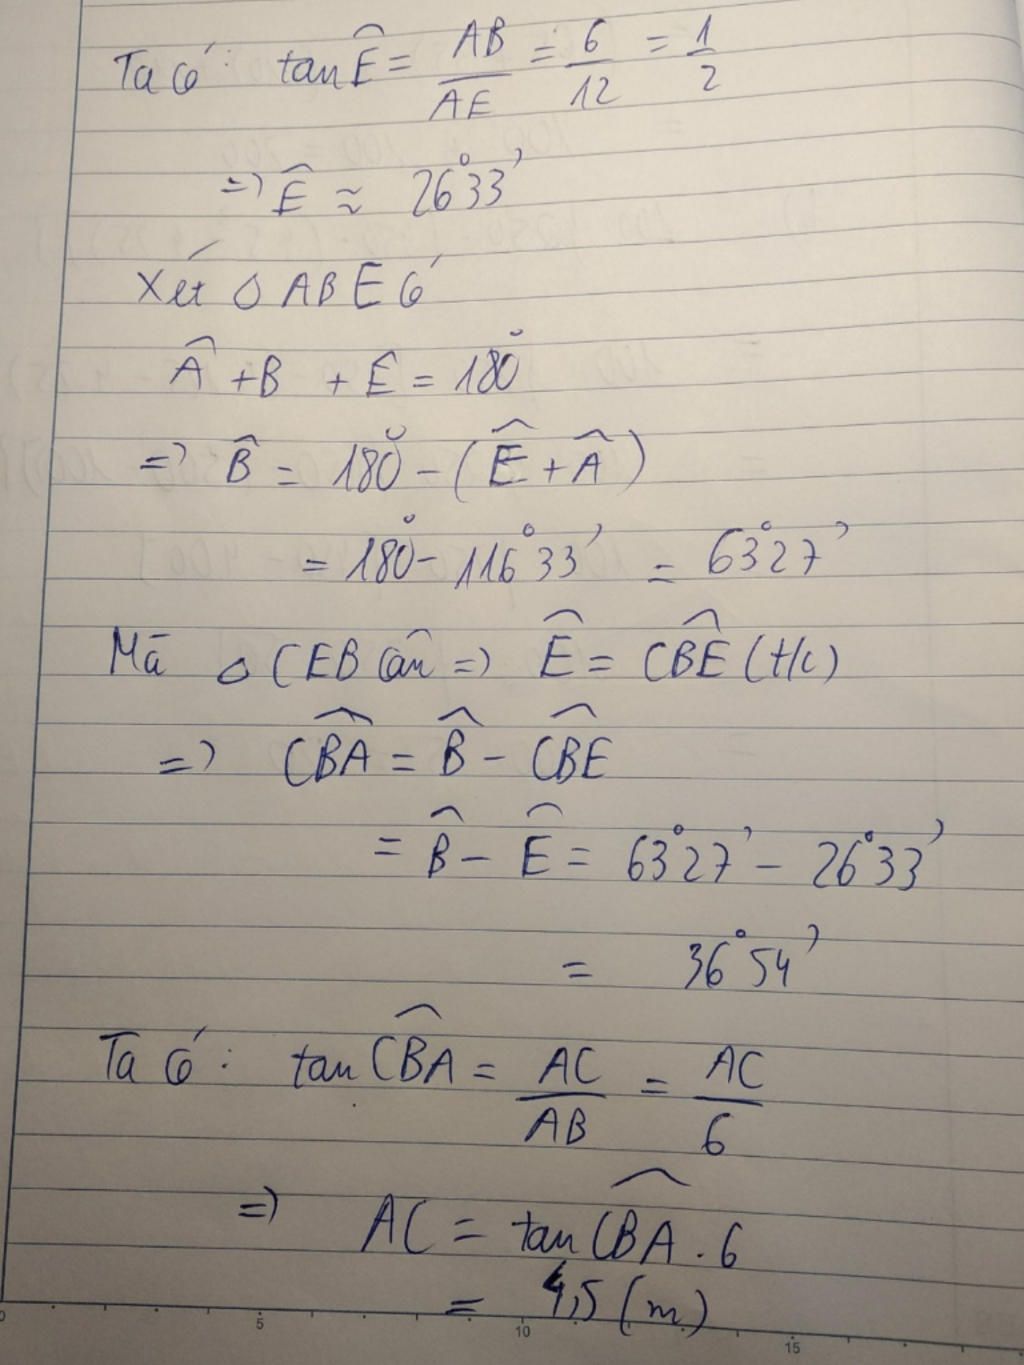 Ta có: tan Ê = AB/AE = 6/12 = 1/2
=> Ê ≈ 26°33'
Xét △ ABE có
Â + B + E = 180°
=> B̂ = 180° - (Ê + Â)
= 180° - 116°33' = 63°27'
Mà △ CEB cân => Ê = CBÊ (t/c)
=> CB̂A = B̂ - CB̂E
= B̂ - Ê = 63°27' - 26°33'
= 36°54'
Ta có: tan CB̂A = AC/AB = AC/6
=> AC = tan CB̂A . 6
= 4,5 (m)
0 5 10 15